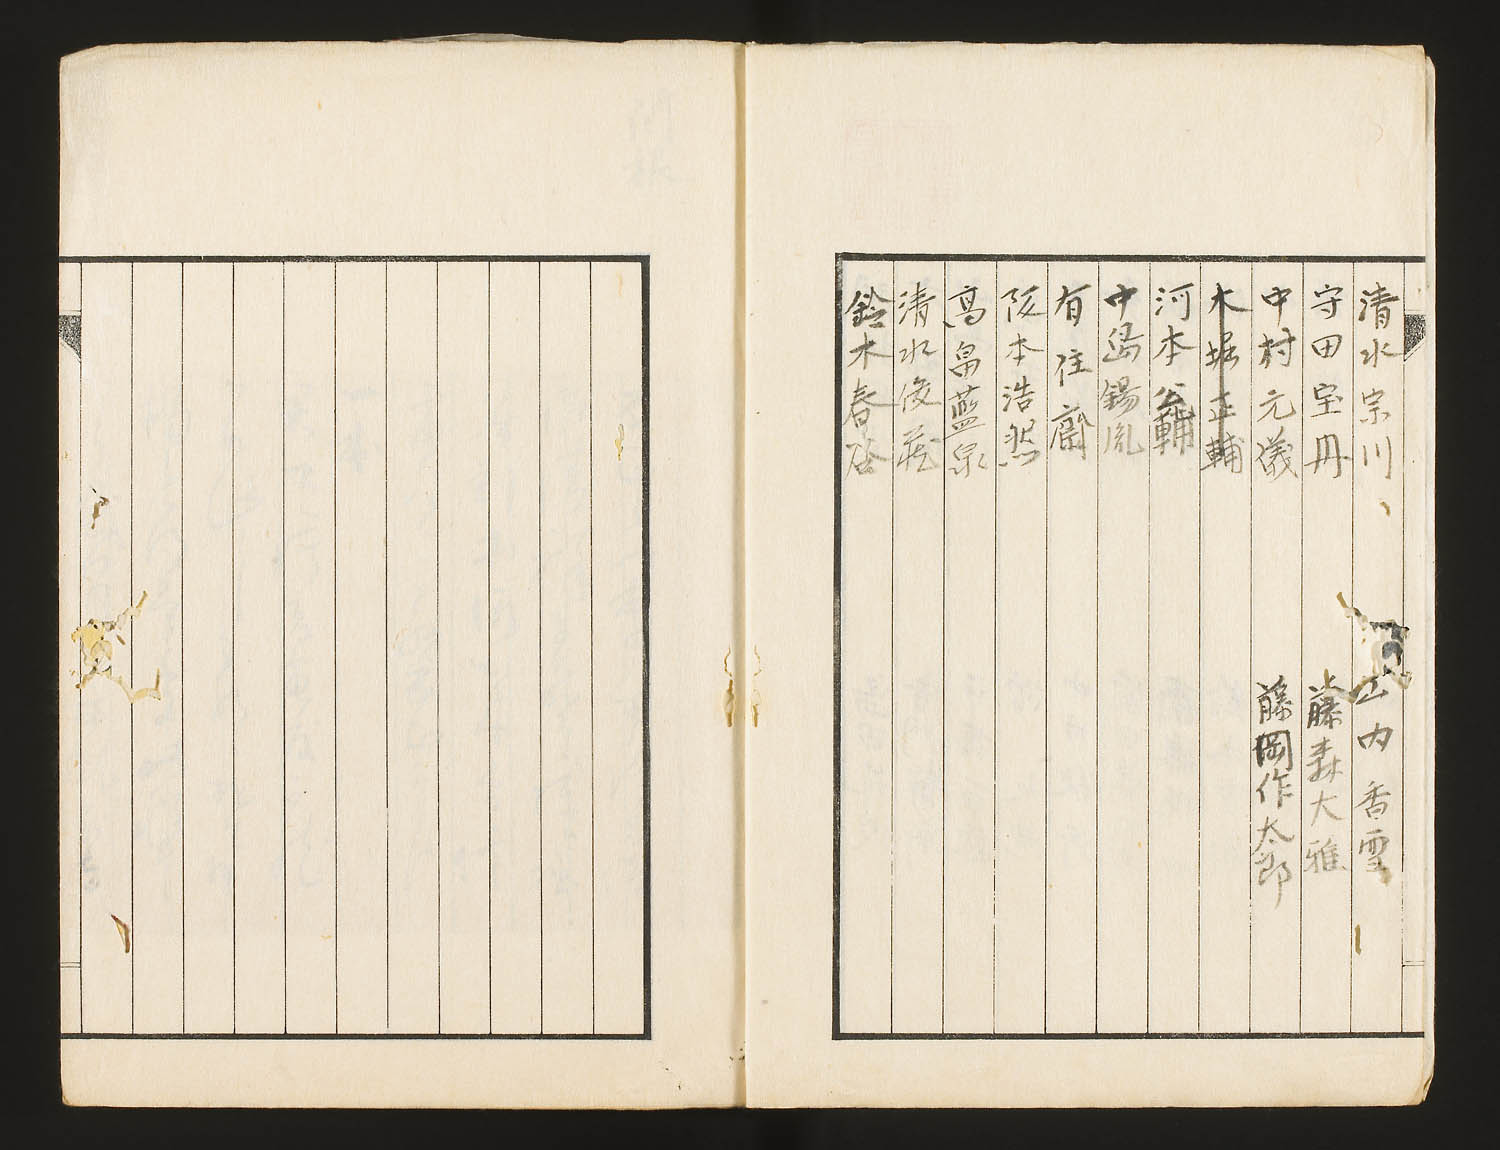 清水宗川
守田宝丹
中村元儀
木堀正輔
河本公輔
中島錫胤
有住齋
阪本浩然
高畠藍泉
清水俊蔵
鈴木春
山内香雪
藤森大雅
藤岡作太郎